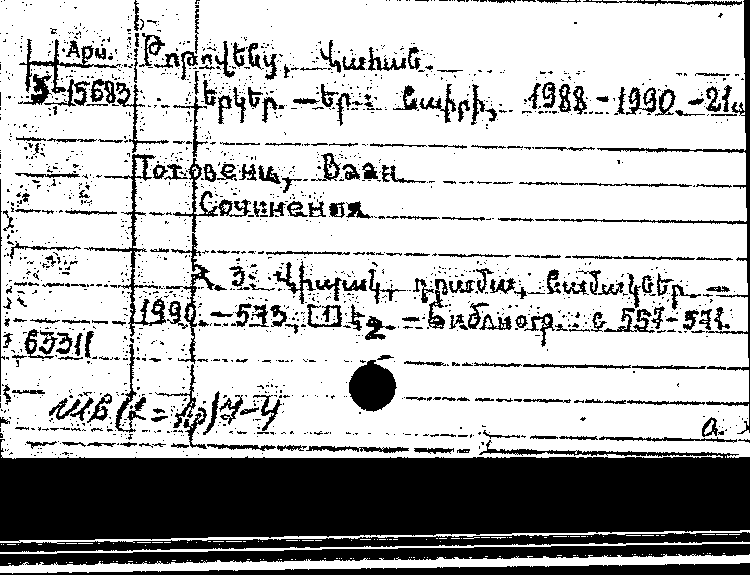 Арм. Թոթովենց, Վահան.
3-15683 Երկեր. — Եր.: Նաիրի, 1988-1990. -21
Тотовенц, Ваан
Сочинения
Հ. 3: Վիպակ, դրամա, նամակներ. —
1990. — 573, [1] էջ. — Библиогр.: с 557-571.
65311
а.